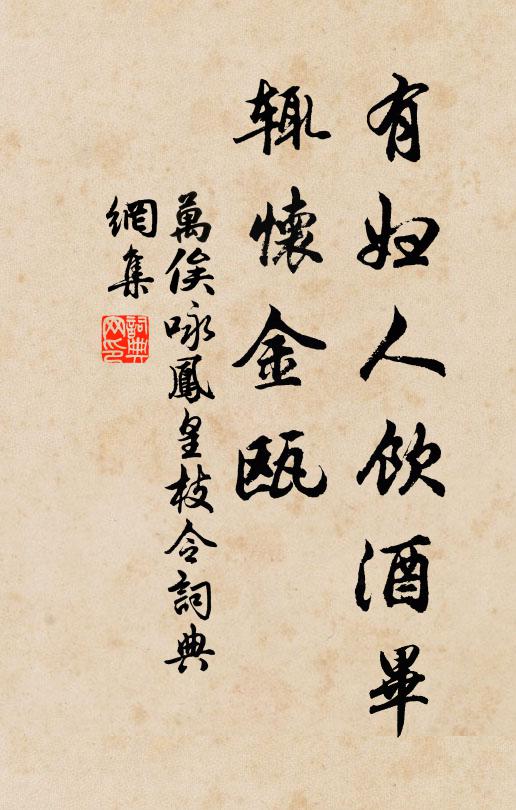 有妇人饮酒毕
辄怀金瓯
萬俟咏鳳皇枝令詞典
網集
詞典
网印